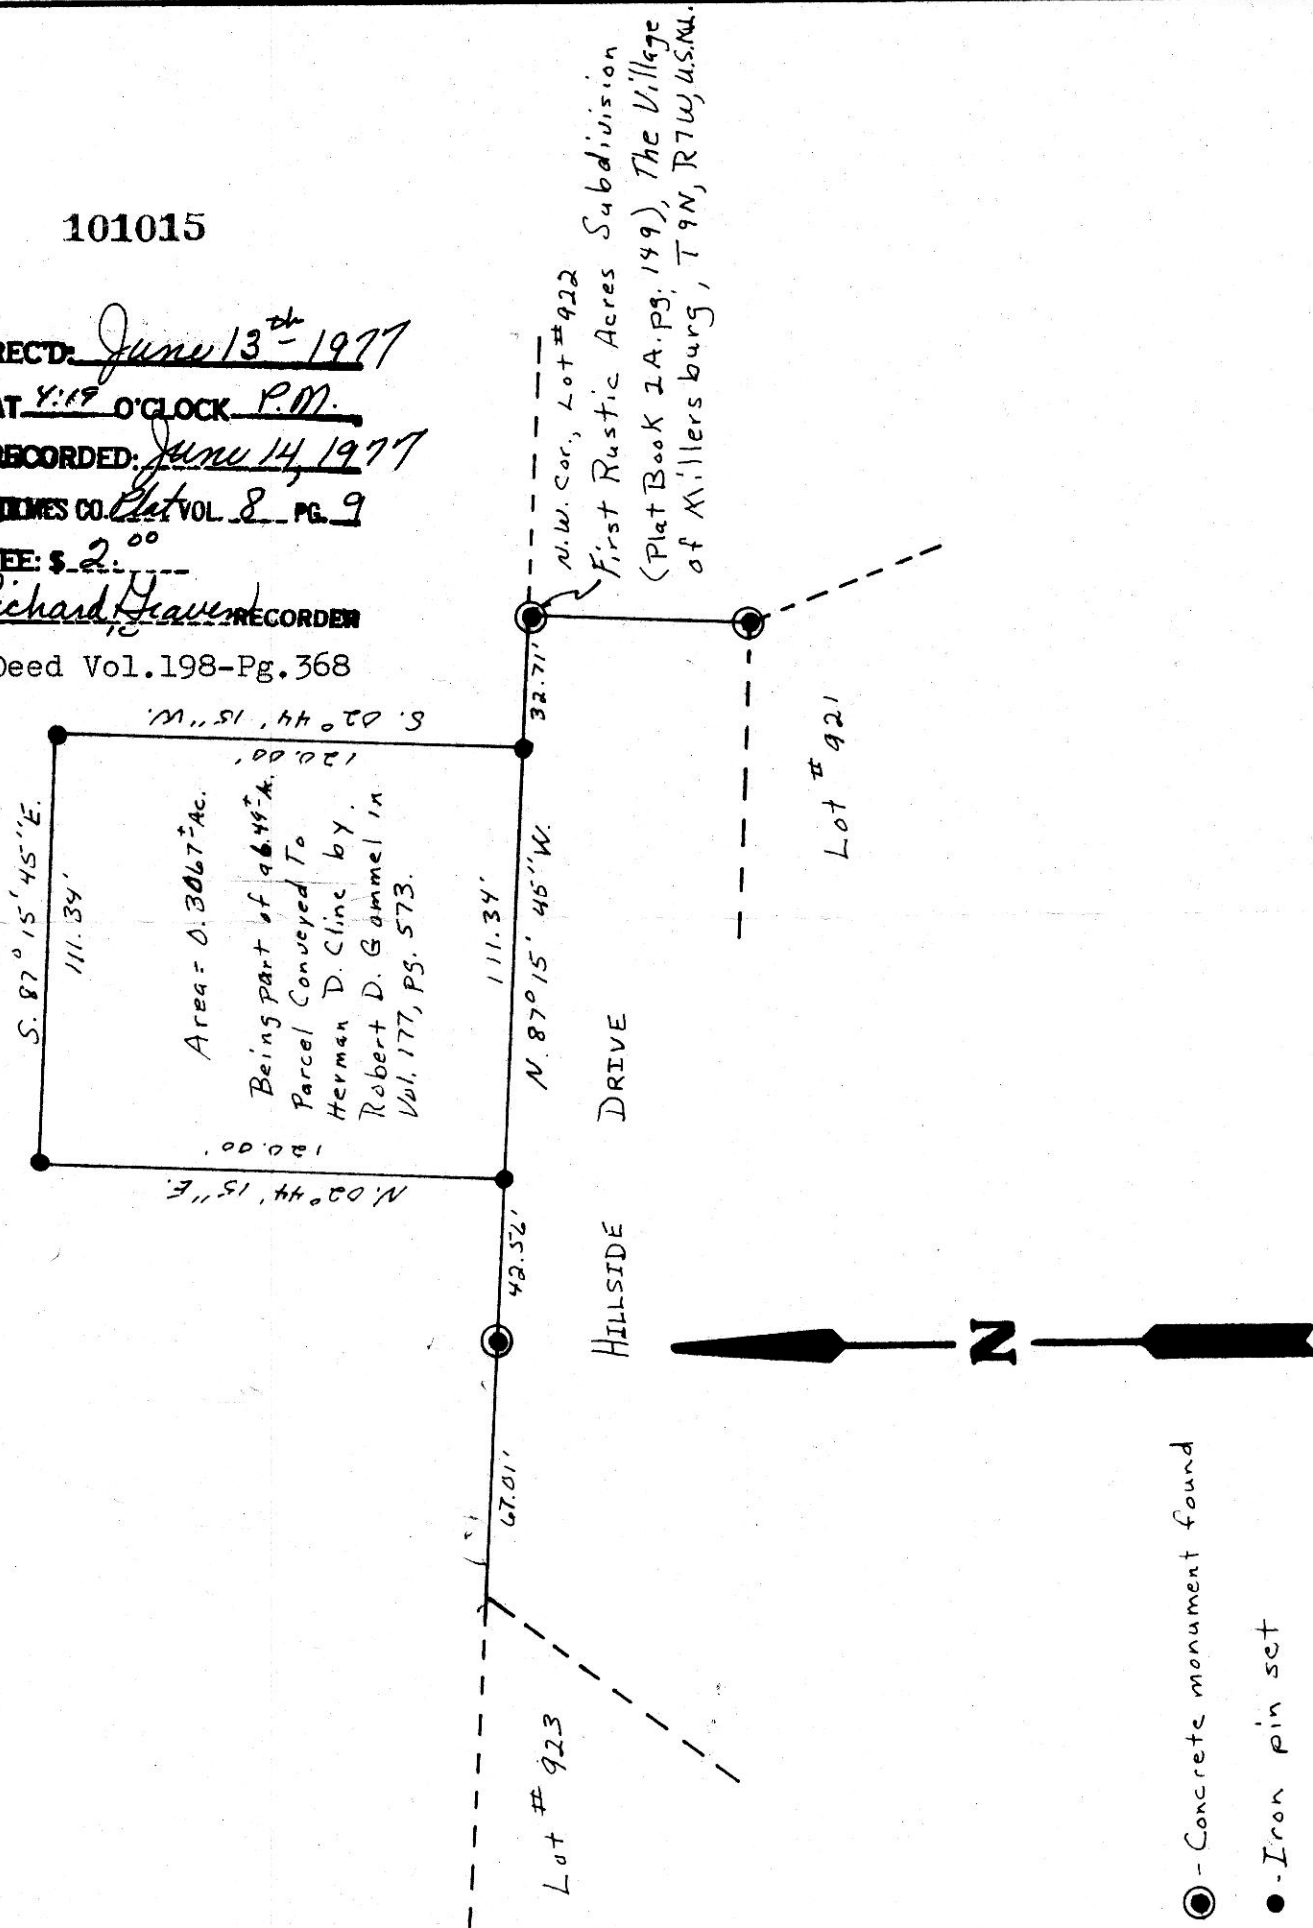 101015
REC'D: June 13th 1977
AT 4:19 O'CLOCK P.M.
RECORDED: June 14, 1977
HOLMES CO. Plat VOL. 8 PG. 9
FEE: $ 2.00
Richard Graven RECORDER
Deed Vol.198-Pg.368
N.W. Cor., Lot #922
First Rustic Acres Subdivision
(Plat Book 2A. pg. 149), The Village
of Millersburg, T9N, R7W, U.S.M.L.
S. 87° 15' 45" E.
111.34'
S. 02° 44' 15" W.
120.00'
Area = 0.3067± Ac.
Being part of a 6.49± A.
Parcel Conveyed To
Herman D. Cline by
Robert D. Gammel in
Vol. 177, pg. 573.
120.00'
N. 02° 44' 15" E.
111.34'
N. 87° 15' 45" W.
32.71'
42.56'
67.01'
HILLSIDE DRIVE
Lot # 921
Lot # 923
N
- Concrete monument found
- Iron pin set